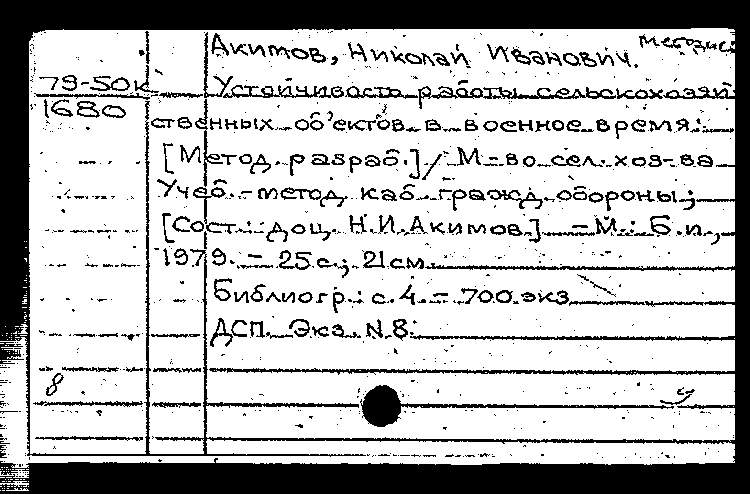 Акимов, Николай Иванович.
79-50к Устойчивость работы сельскохозяй-
1680 ственных об'ектов в военное время:
[Метод. разраб.] / М-во сел. хоз-ва
Учеб.-метод. каб. гражд. обороны;
[Сост.: доц. Н.И.Акимов.] – М.: Б.и.,
1979. – 25 с.; 21 см.
Библиогр.: с. 4. – 700 экз
ДСП. Экз. N 8.
8